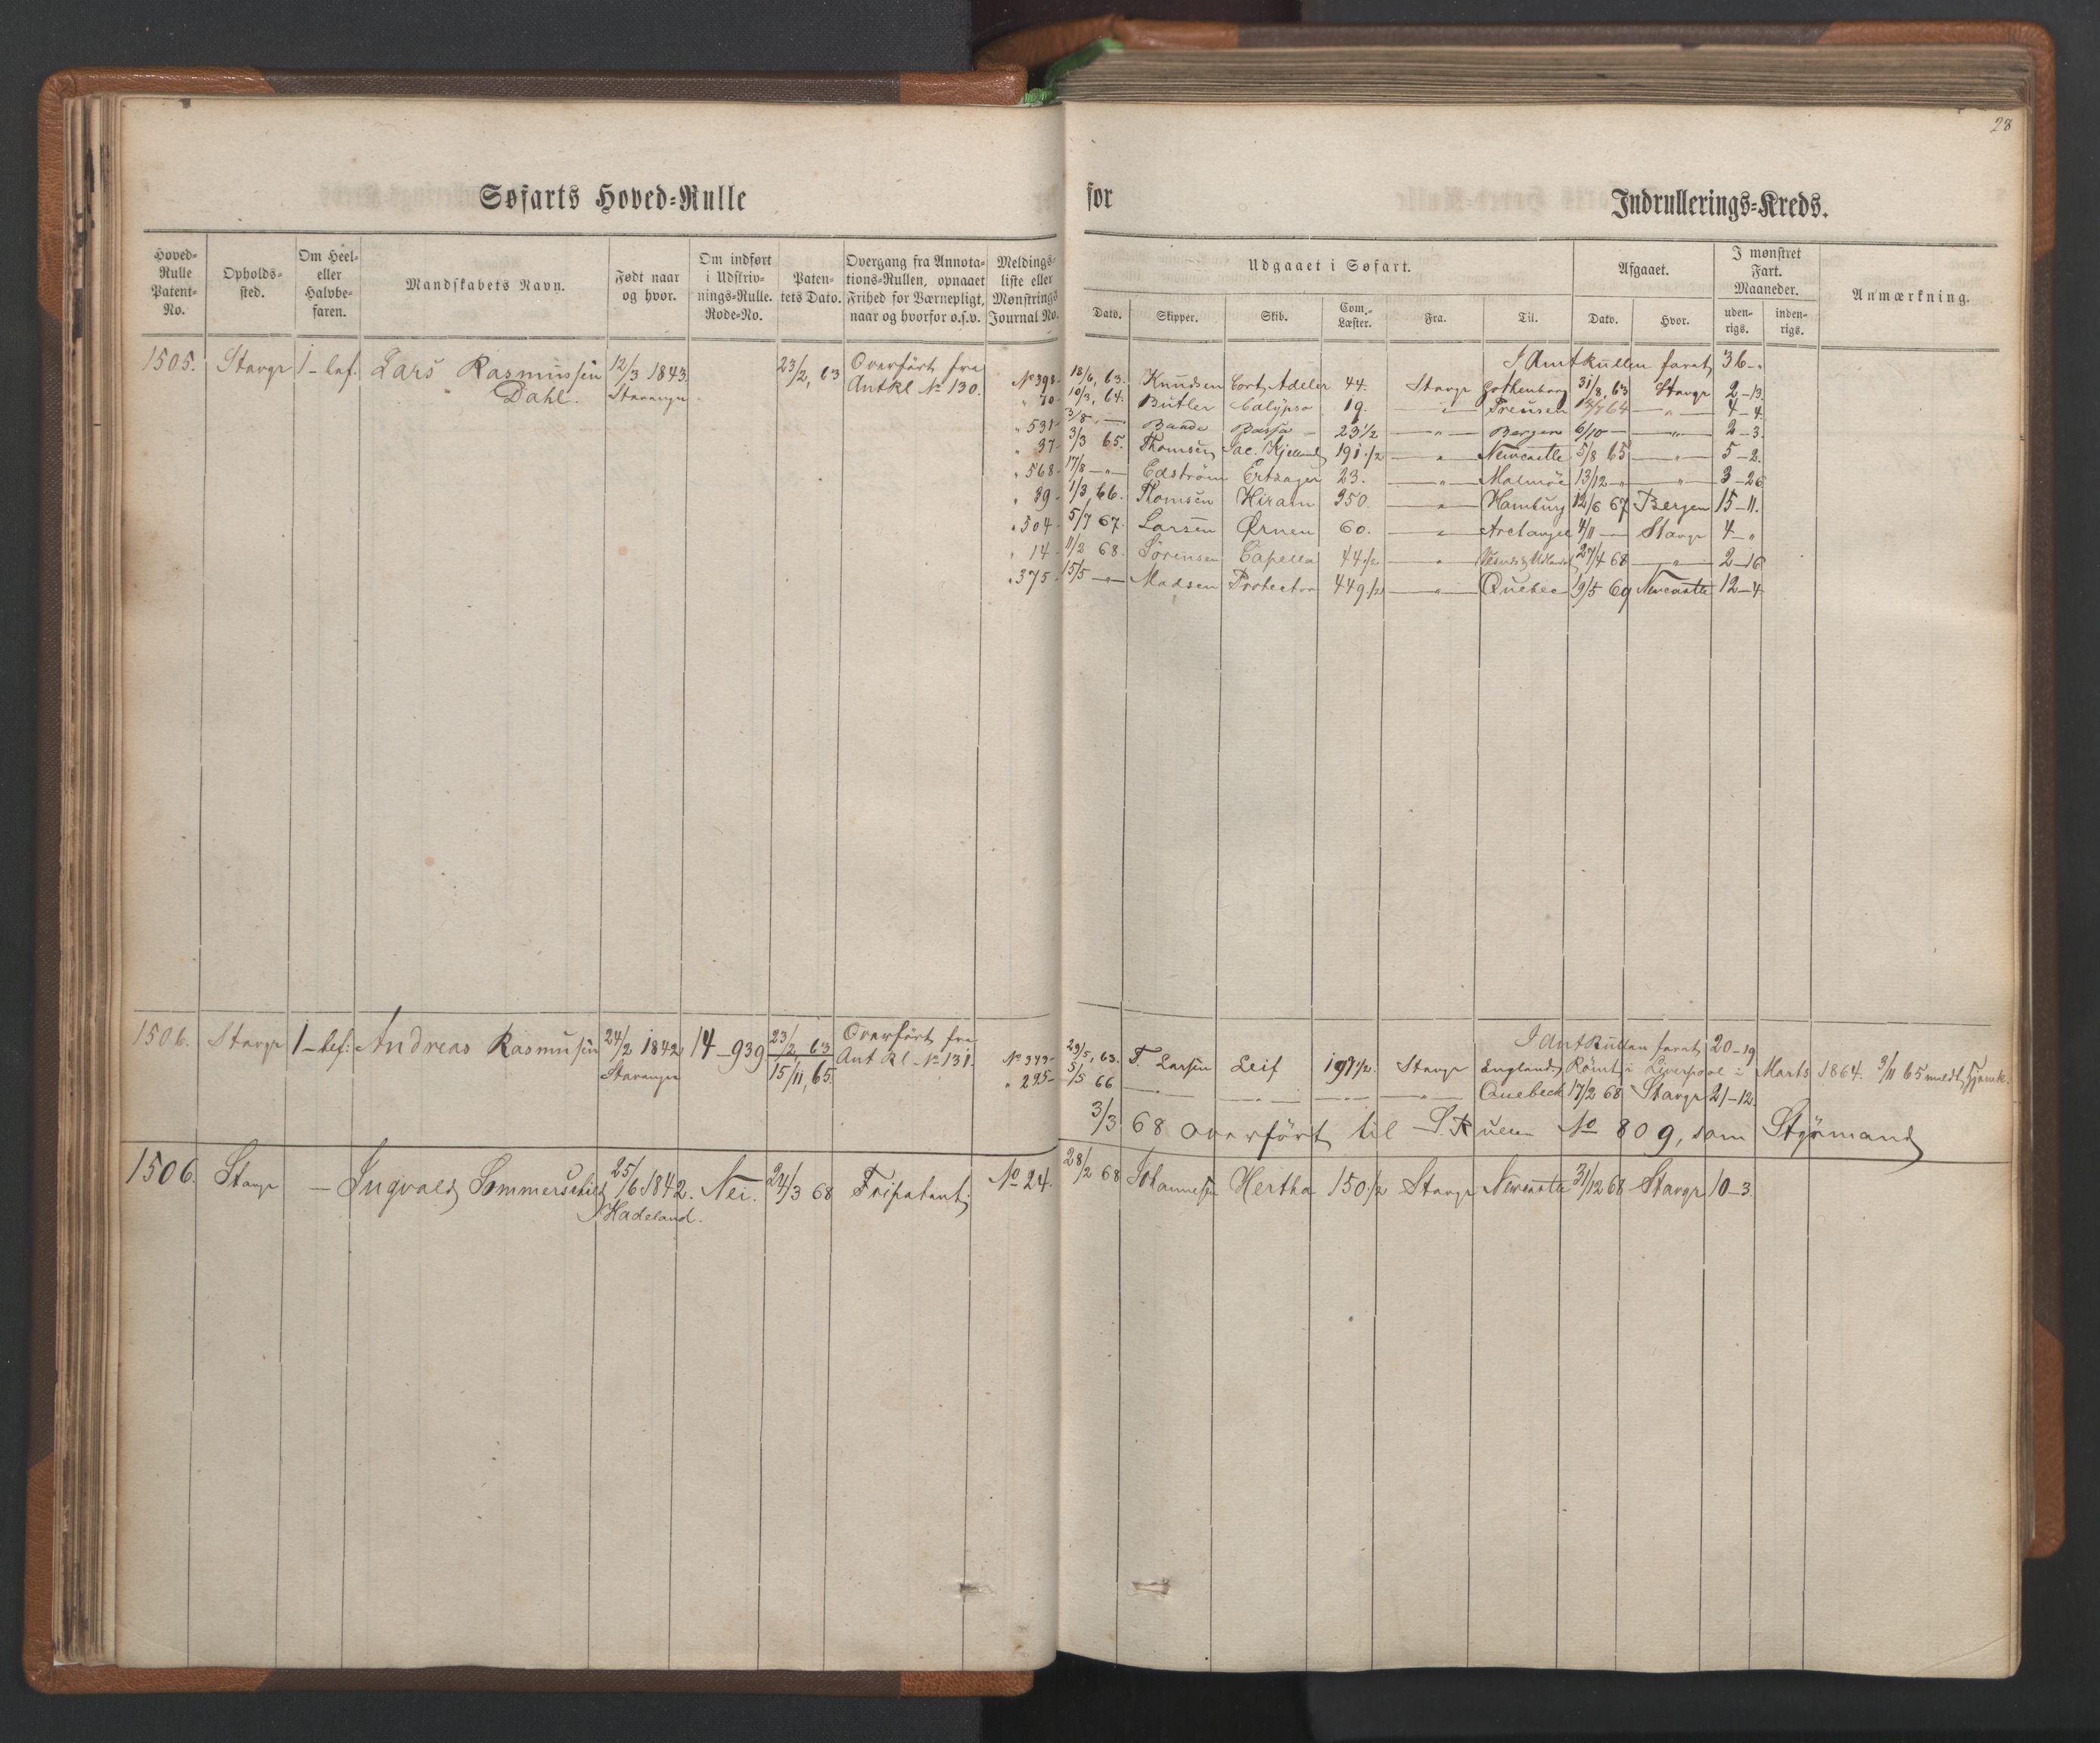 28
Søfarts Hoved-Rulle for Indrullerings-Kreds.
Hoved-Rulle Patent-No. Opholds-sted. Om Heel- eller Halvbe-faren. Mandskabets Navn. Født naar og hvor. Om indført i Udskriv-nings-Rulle. Rode-No. Paten-tets Dato. Overgang fra Annota-tions-Rullen, opnaaet Frihed for Værnepligt, naar og hvorfor o.s.v. Meldings-liste eller Mønstrings Journal No.
Udgaaet i Søfart. Afgaaet. I mønstret Fart. Maaneder. Anmærkning.
Dato. Skipper. Skib. Com.-Læster. Fra. Til. Dato. Hvor. uden-rigs. inden-rigs.
1505. Stavgr 1 - bef. Lars Rasmussen 12/3 1843. 23/2, 63 Overført fra
Dahl. Stavanger Antkl No 130.
I Antkullen faret 36 - "
No 398 - 18/6, 63. Knudsen Cort Adeler 44. Stavgr Gothenborg 31/8, 63 Stavgr 2 - 13.
" 70 - 10/3, 64. Butler Calypso 19. — " — Preusen 13/7 64 — " — 4 - 4.
" 531 - 3/8 - — Baade Bassa — 23 1/2 — " — Bergen 6/10 — — " — 2 - 3.
" 37 - 3/3 65. Thomsen Jac. Kjelland 191 1/2 — " — Newcastle 5/8 65 — " — 5 - 2.
" 568 - 17/8 — " — Edström Ertzager 23. — " — Malmöe 13/12 - " — " — 3 - 26
" 39 - 1/3, 66. Thomsen Hiram 250. — " — Hamburg 12/6 67 Bergen 15 - 11.
" 504 - 5/7 67. Larsen Ørnen 60. — " — Archangel 4/11 — Stavgr 4 - "
" 14 - 11/2 68. Sørensen Capella 44 1/2 — " — 27/4 68 — " — 2 - 16
" 375 - 15/5 — " — Madsen Protector 449 1/2 — " — Quebec 19/5 69 Newcastle 12 - 4
1506. Stavgr 1 - bef: Andreas Rasmussen 24/2 1842 14 - 939 23/2, 63 Overført fra
Stavanger 15/11, 65. Ant Rl No 131.
I Ant Rullen faret 20 - 19
No 343 - 29/5, 63. T. Larsen Leif 197 1/2. Stavgr England Rømt i Liverpool i Marts 1864. 3/11 65 meldt Hjemk.
" 295 - 5/5 66 — " — — " — — " — — " — Quebeck 17/2 68 Stavgr 21 - 12.
3/3 68 overført til S. Rullen No 809, som Styrmand
1506. Stavgr — Ingvald Sommerschield 25/6 1842. Nei. 24/3 68 Fripatent. No 24. 28/2 68 Johannesen Hertha 150 1/2 Stavgr Newcastle 31/12 68 Stavgr 10 - 3.
Hadeland.